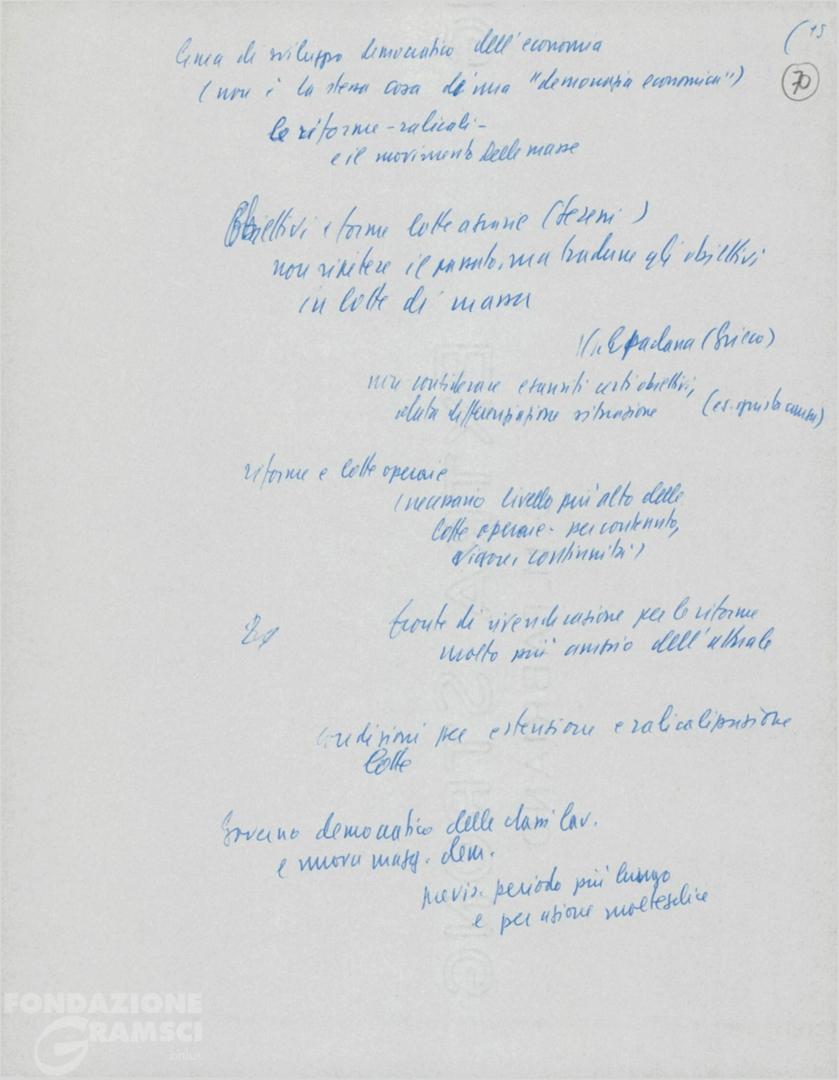 (15
70
linea di sviluppo democratico dell'economia
(non è la stessa cosa di una "democrazia economica")
le riforme - radicali -
e il movimento delle masse
Obiettivi e forme lotte agrarie (Sereni)
non ripetere il passato, ma tradurre gli obiettivi
in lotte di massa
Valpadana (Grieco)
non considerare esauriti certi obiettivi,
data differenziazione situazione (es. giusta causa)
riforme e lotte operaie
(necessario livello più alto delle
lotte operaie - per contenuto,
vigore, continuità)
fronte di rivendicazione per le riforme
molto più ampio dell'attuale
condizioni per estensione e radicalizzazione
lotte
Governo democratico delle classi lav.
e nuova magg. dem.
previs. periodo più lungo
e per azione molteplice
FONDAZIONE
GRAMSCI
onlus